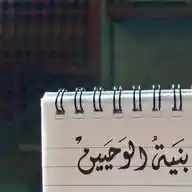 بنيةُ الوَحيَينْ